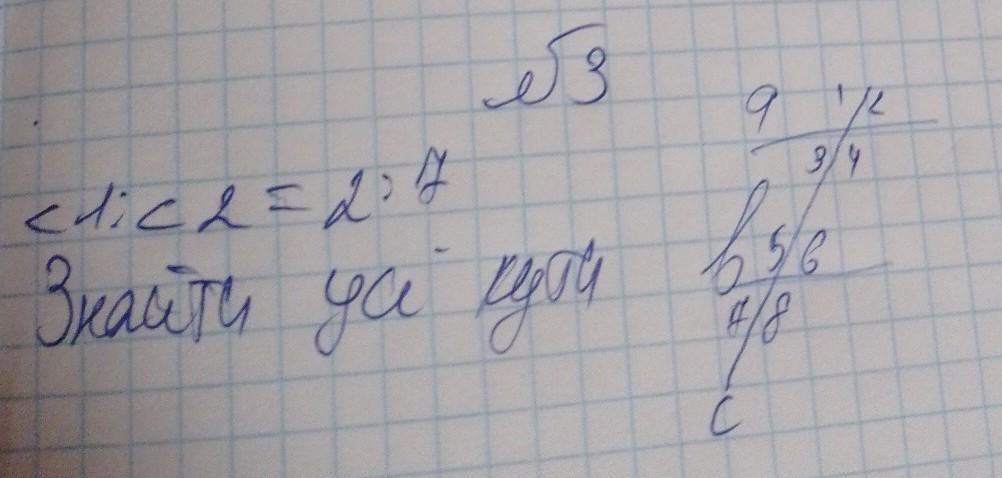 №3
<1:<2=2:7
Знайти усі кути
a 1/2
3/4
b 5/6
7/8
c